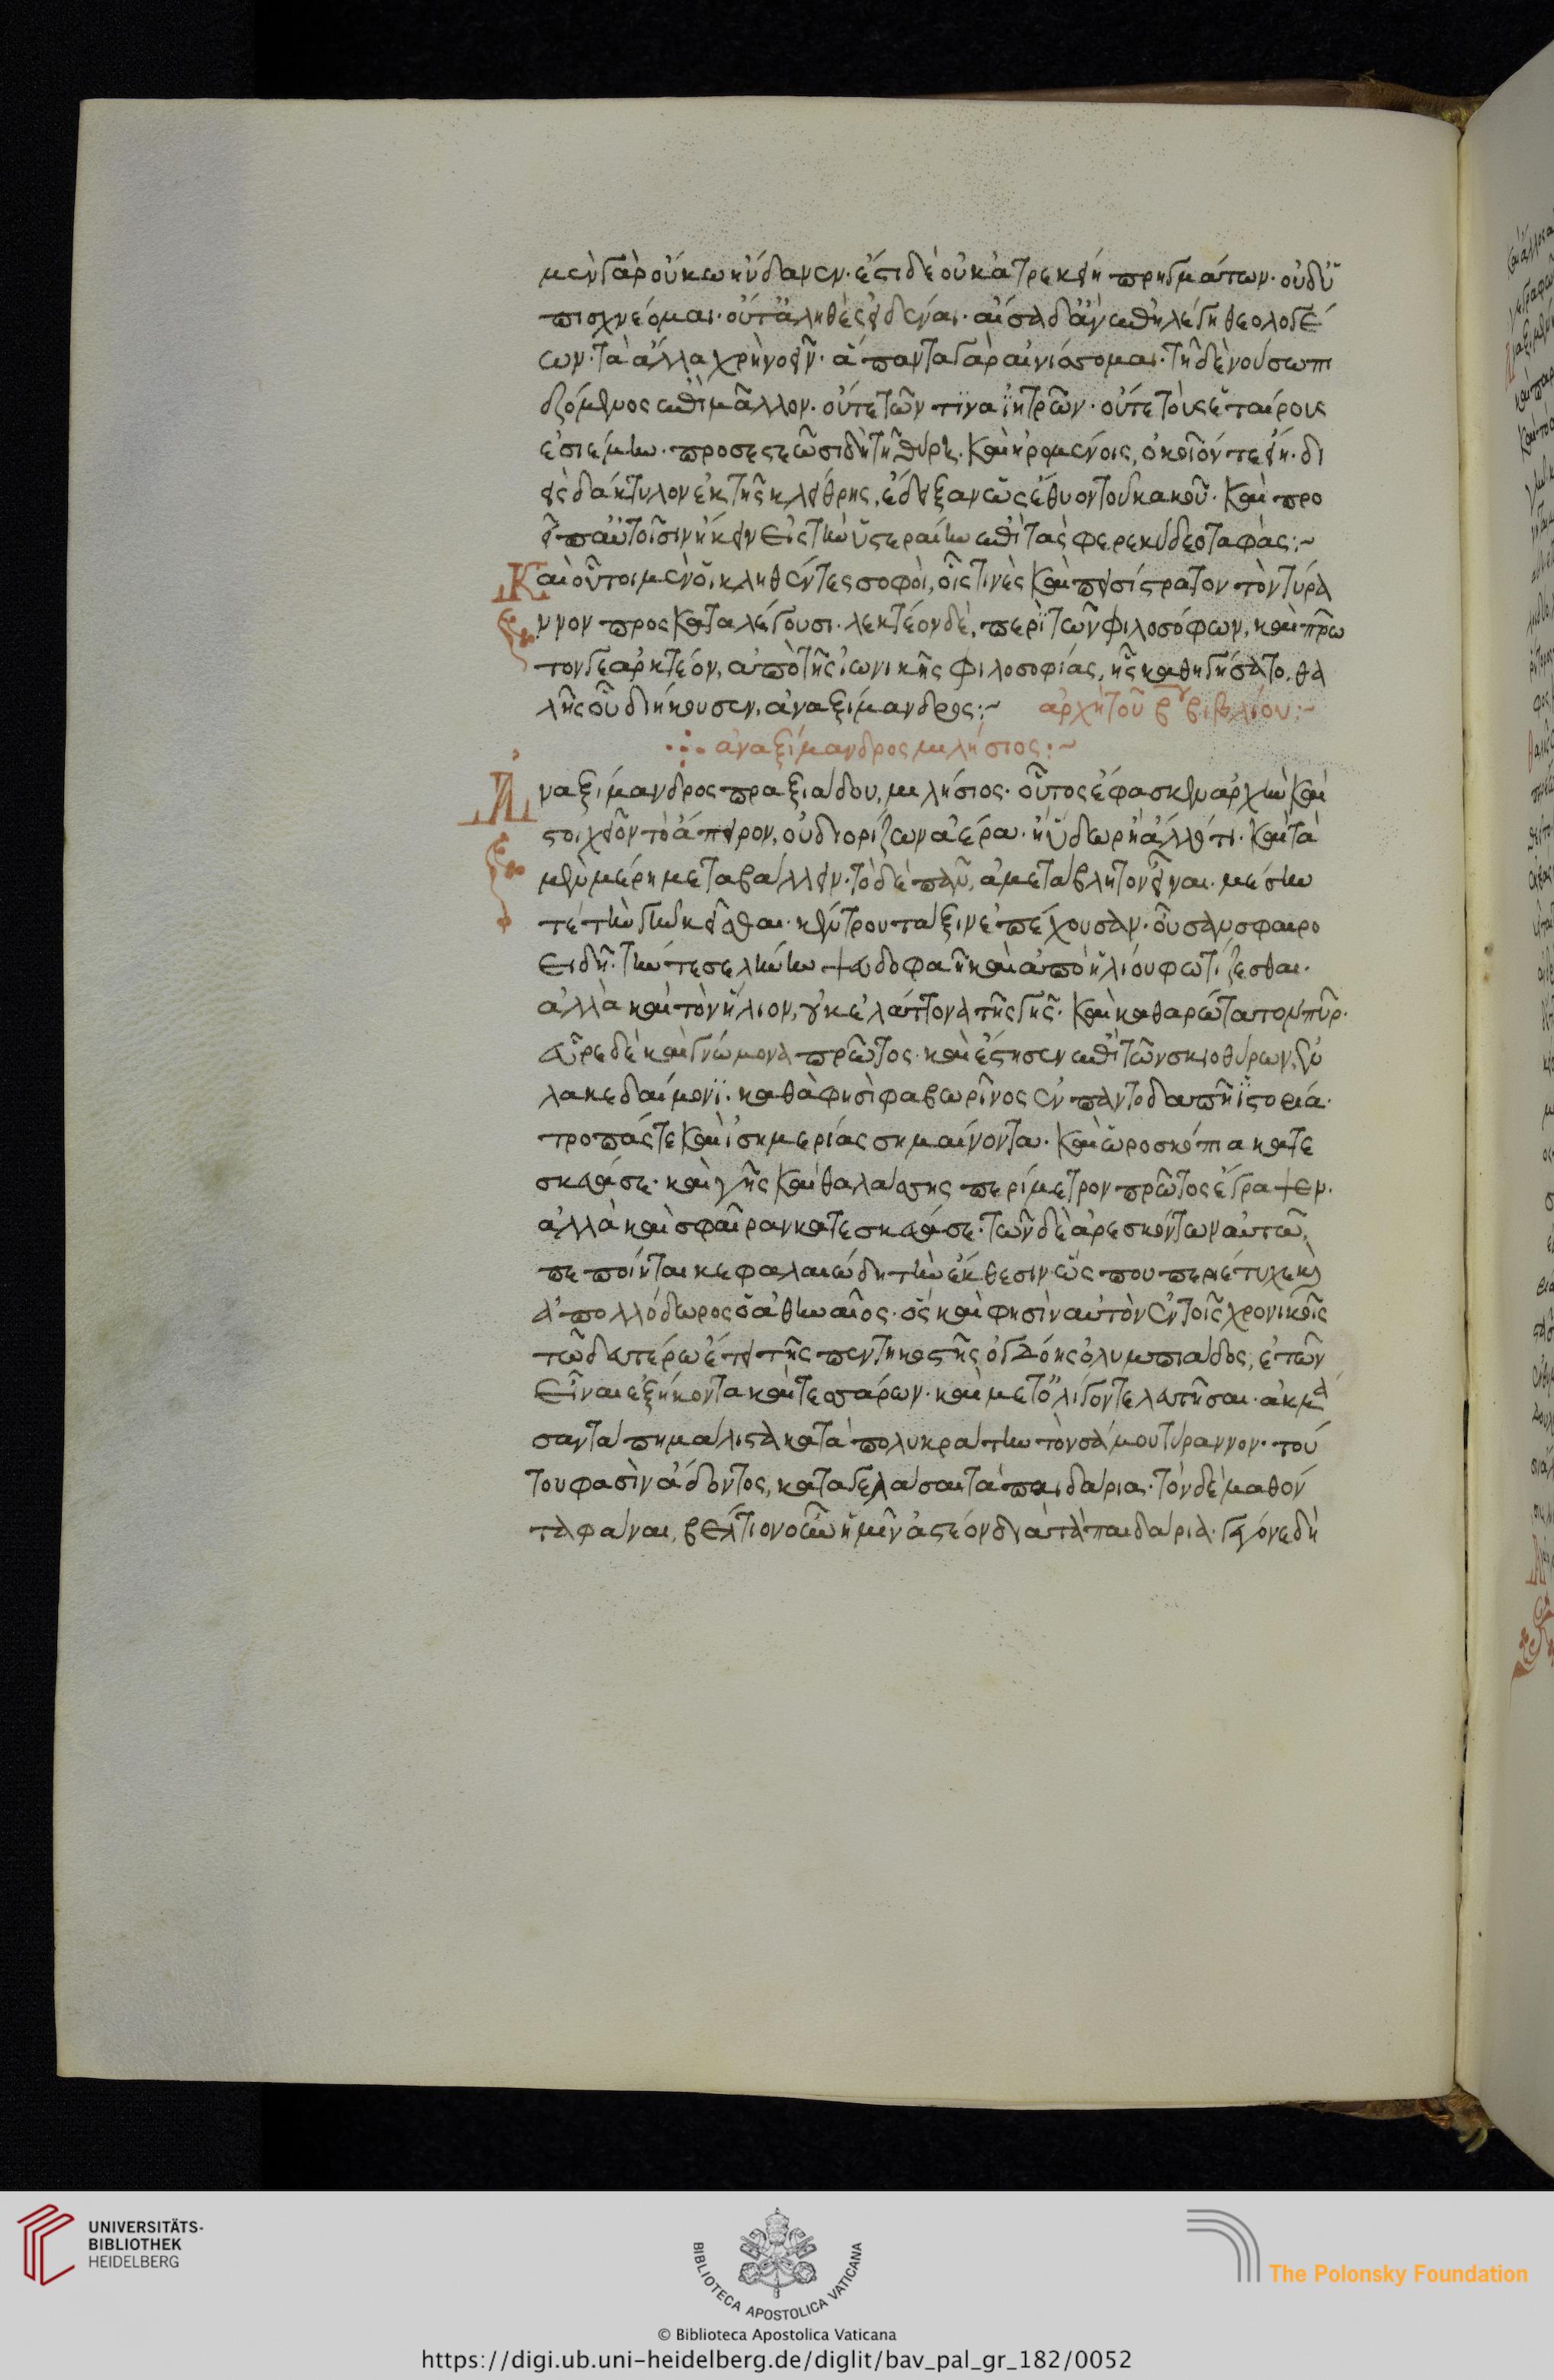 μὲν γὰρ οὔκω ἥνδανεν· ἔστι δὲ οὐκ ἀτρεκείη πρηγμάτων· οὐδ' ὑ
πισχνέομαι· οὔτ' ἀληθὲς εἰδέναι· αἴσα δ' ἂν ἐπιλέγη θεολογέ
ων· τὰ ἄλλα χρὴ νοεῖν· ἅπαντα γὰρ αἰνίσσομαι· τῆ δὲ νούσω πι
εζόμενος ἐπὶ μᾶλλον· οὔτε τῶν τινα ἰητρῶν· οὔτε τοὺς ἑταίρους
ἐσιέμην· προσεστεῶσι δὲ τῆ θύρη· καὶ εἰρομένοις, ὁκοῖόν τε εἴη· δι
εὶς δάκτυλον ἐκ τῆς κλείθρης, ἔδειξα ἂν ὡς ἔθυον τοῦ κακοῦ· καὶ προ
εῖπα αὐτοῖσιν ἥκειν εἰς τὴν ὑστεραίην ἐπὶ τὰς φερεκύδεο ταφάς:~
Καὶ οὗτοι μὲν οἱ κληθέντες σοφοὶ, οἷς τινὲς καὶ πεισίστρατον τὸν τύρα
ννον προσκαταλέγουσι· λεκτέον δὲ, περὶ τῶν φιλοσόφων, καὶ πρῶ
τον γε ἀρκτέον, ἀπὸ τῆς ἰωνικῆς φιλοσοφίας, ἧς καθηγήσατο, θα
λῆς οὗ διήκουσεν, ἀναξίμανδρος:~ ἀρχὴ τοῦ β βιβλίου:~
ἀναξίμανδρος μιλήσιος:~
Ἀναξίμανδρος πραξιάδου, μιλήσιος· οὗτος ἔφασκεν ἀρχὴν καὶ
στοιχεῖον τὸ ἄπειρον, οὐ διορίζων ἀέρα· ἢ ὕδωρ ἢ ἄλλό τι· καὶ τὰ
μὲν μέρη μεταβάλλειν· τὸ δὲ πᾶν, ἀμετάβλητον εἶναι· μέσην
τε τὴν γῆν κεῖσθαι· κέντρου τάξιν ἐπέχουσαν· οὖσαν σφαιρο
ειδῆ· τήν τε σελήνην ψευδοφαῆ καὶ ἀπὸ ἡλίου φωτίζεσθαι·
ἀλλὰ καὶ τὸν ἥλιον, οὐκ ἐλάττονα τῆς γῆς· καὶ καθαρώτατον πῦρ·
εὗρε δὲ καὶ γνώμονα πρῶτος· καὶ ἔστησεν ἐπὶ τῶν σκιοθύρων, ἐν
λακεδαίμονι· καθὰ φησὶ φαβωρῖνος ἐν παντοδαπῆ ἱστορία·
τροπάς τε καὶ ἰσημερίας σημαίνοντα· καὶ ὡροσκόπια κατε
σκεύασε· καὶ γῆς καὶ θαλάσσης περίμετρον πρῶτος ἔγραψεν·
ἀλλὰ καὶ σφαῖραν κατεσκεύασε· τῶν δὲ ἀρεσκόντων αὐτῶ,
πεποίηται κεφαλαιώδη τὴν ἔκθεσιν ὥς που περιέτυχε καὶ
ἀπολλόδωρος ὁ ἀθηναῖος· ὃς καὶ φησὶν αὐτὸν ἐν τοῖς χρονικοῖς
τῶ δευτέρω ἔτει τῆς πεντηκοστῆς ὀγδόης ὀλυμπιάδος, ἐτῶν
εἶναι ἑξήκοντα καὶ τεσσάρων· καὶ μετ' ὀλίγον τελευτῆσαι· ἀκμά
σαντά πη μάλιστα κατὰ πολυκράτην τὸν σάμου τύραννον· τού
του φασὶν ἄδοντος, καταγελάσαι τὰ παιδάρια· τὸν δὲ μαθόν
τα φάναι, βέλτιον οὖν ἡμῖν ἀστέον διὰ τὰ παιδάρια· γέγονε δὴ
UNIVERSITÄTS-
BIBLIOTHEK
HEIDELBERG
BIBLIOTECA APOSTOLICA VATICANA
The Polonsky Foundation
© Biblioteca Apostolica Vaticana
https://digi.ub.uni-heidelberg.de/diglit/bav_pal_gr_182/0052